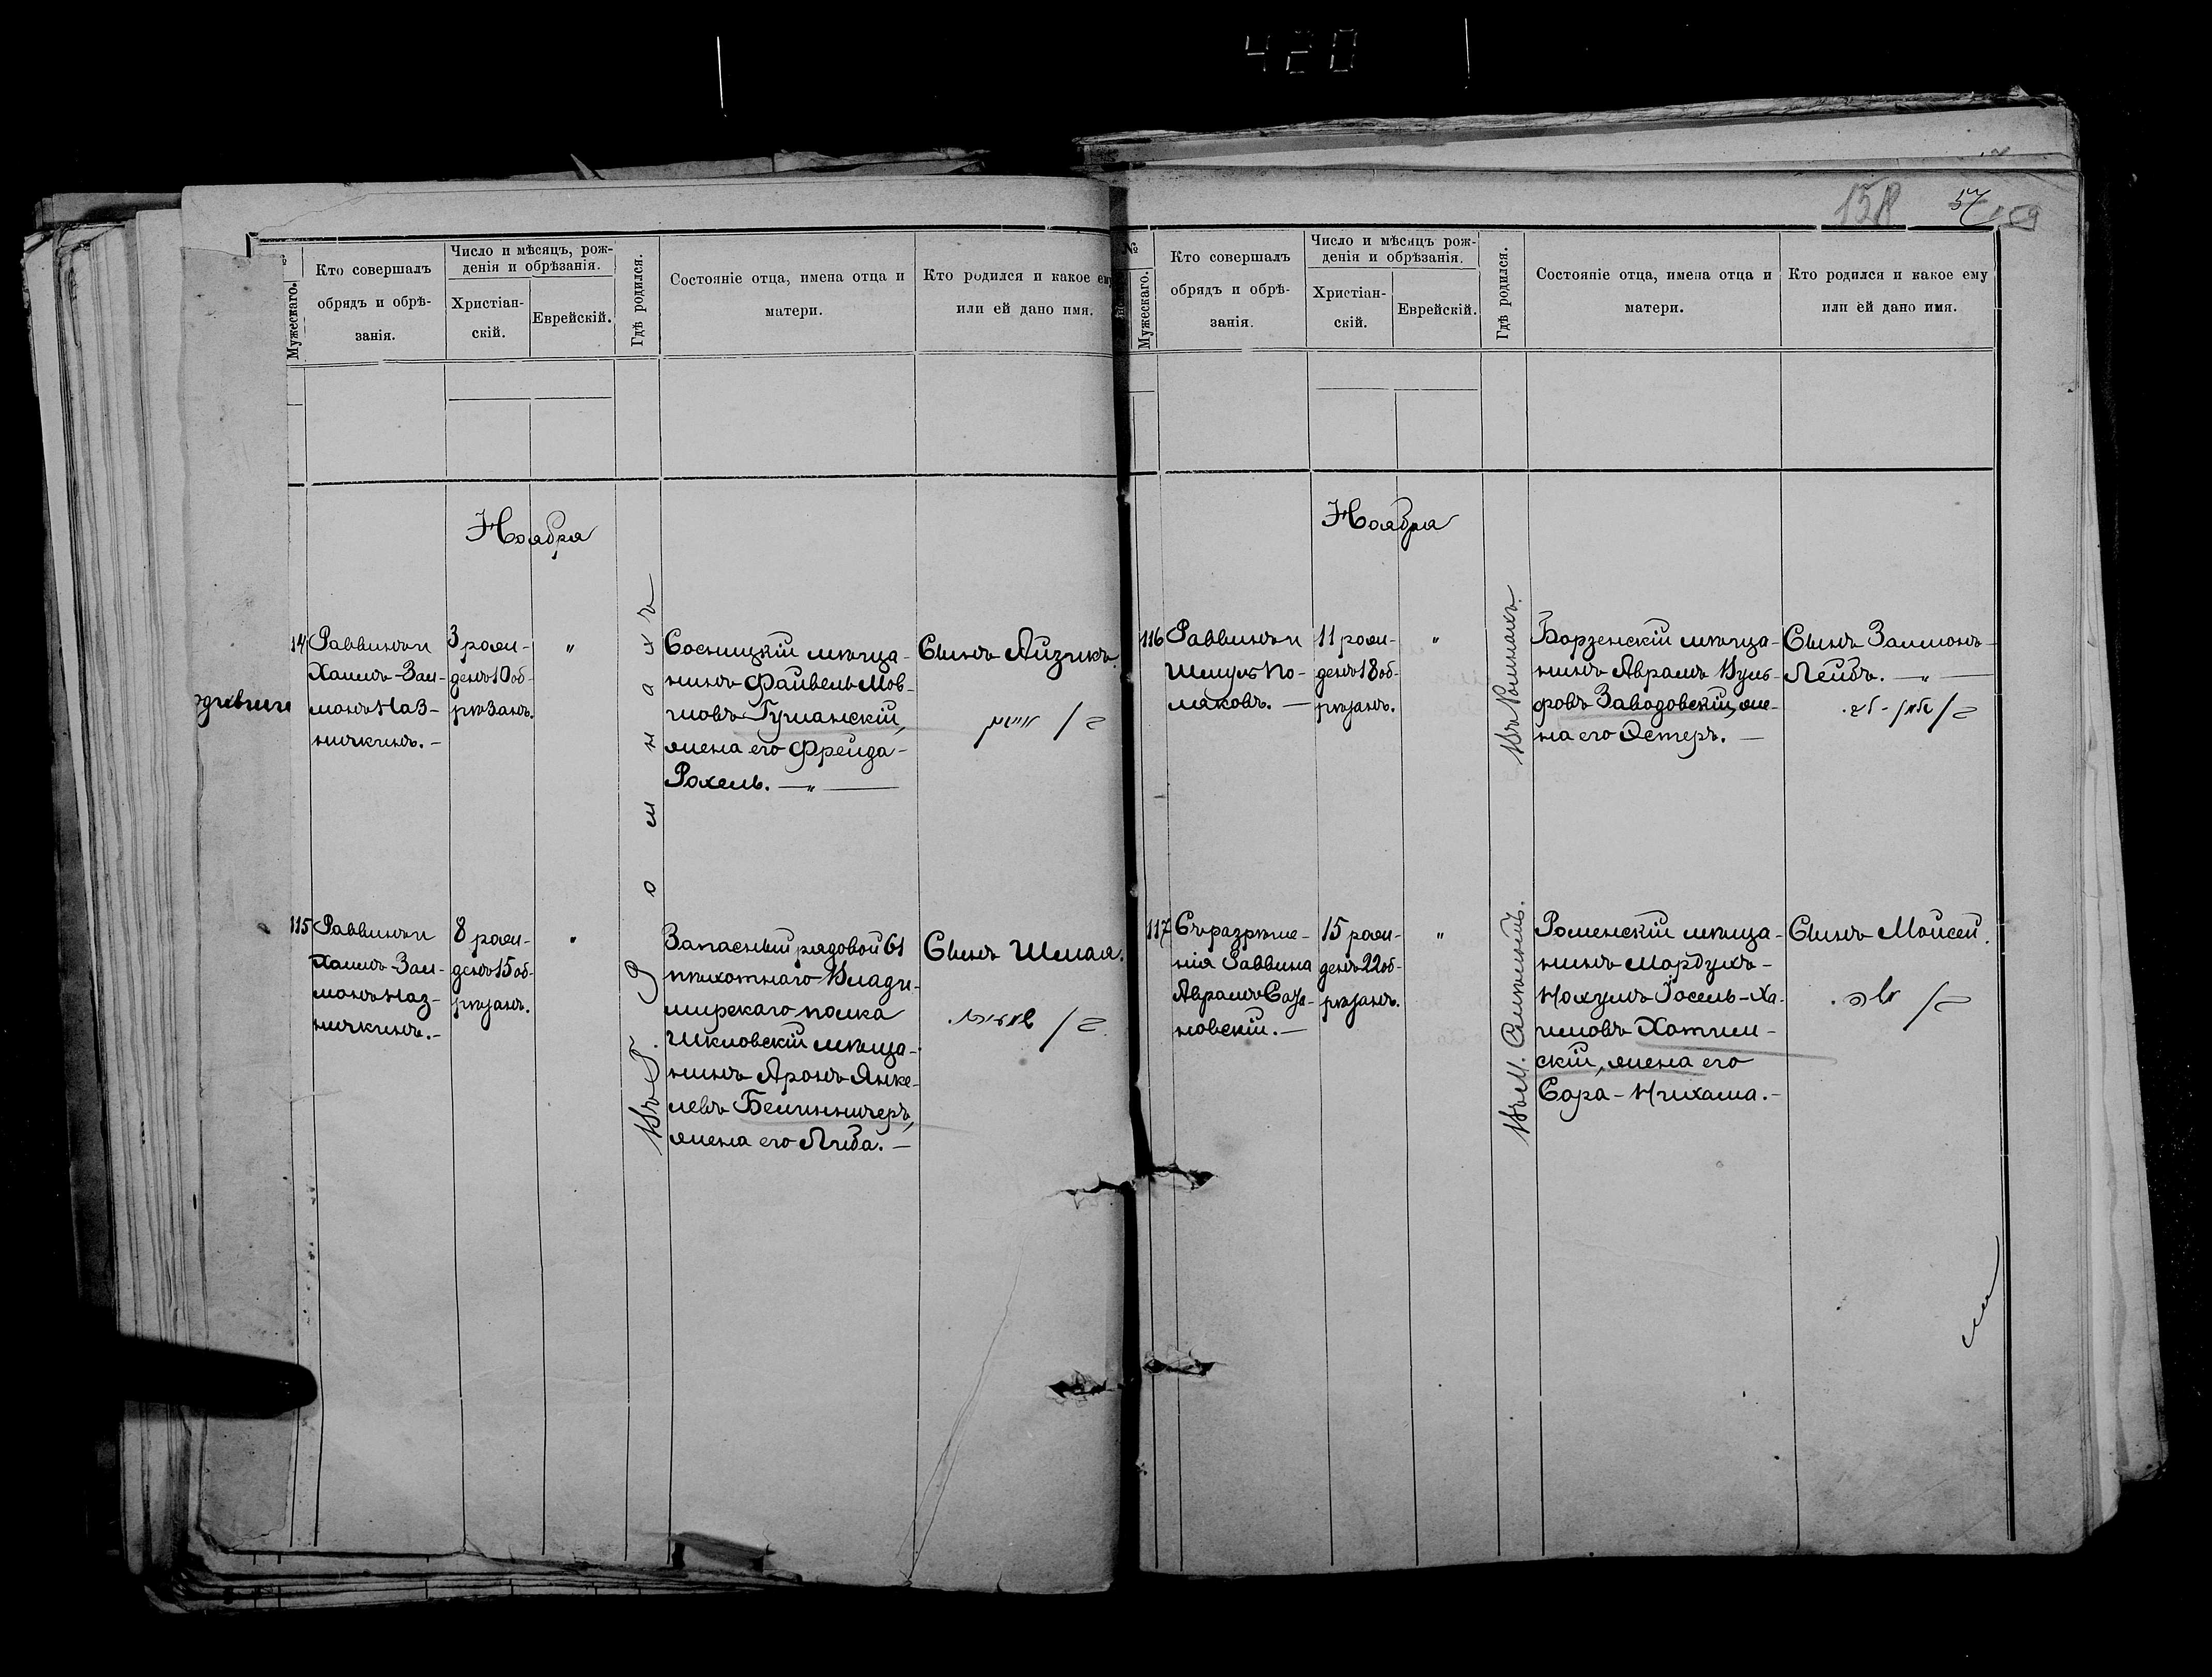 420
158 57
Мужескаго.
Кто совершалъ
обрядъ и обрѣ-
занія.
Число и мѣсяцъ, рож-
денія и обрѣзанія.
Христіан-
скій.
Еврейскій.
Гдѣ родился.
Состояніе отца, имена отца и
матери.
Кто родился и какое ему
или ей дано имя.
Ноября
14
Раввинъ и
Хаимъ-Зал-
монъ Наз-
3 рож-
денъ 10 об-
рѣзанъ.
"
Въ Г. Ромнахъ
Сосницкій мѣща-
нинъ Файвель Мов-
шовъ Гуманскій,
жена его Фрейда-
Рохель. — " —
Сынъ Айзикъ.
115
Раввинъ и
Хаимъ-Зал-
монъ Наз-
8 рож-
денъ 15 об-
рѣзанъ.
"
Запасный рядовой 61
пѣхотнаго Влади-
мирскаго полка
Шкловскій мѣща-
нинъ Аронъ Янке-
левъ
жена его Либа. —
Сынъ Шмая.
№
Мужескаго.
Кто совершалъ
обрядъ и обрѣ-
занія.
Число и мѣсяцъ рож-
денія и обрѣзанія.
Христіан-
скій.
Еврейскій.
Гдѣ родился.
Состояніе отца, имена отца и
матери.
Кто родился и какое ему
или ей дано имя.
Ноября
116
Раввинъ и
Шмуль По-
ляковъ. —
11 рож-
денъ 18 об-
рѣзанъ.
"
Въ Ромнахъ.
Борзенскій мѣща-
нинъ Абрамъ Вуль-
фовъ Заводовскій, же-
на его Эстеръ. —
Сынъ Залмонъ-
Лейбъ. — " —
117
Съ разрѣше-
нія Раввина
Абрамъ Саза-
новскій. —
15 рож-
денъ 22 об-
рѣзанъ.
"
Въ М.
Роменскій мѣща-
нинъ Мордухъ-
Нохумъ Іосель-Ха-
имовъ Хотим-
скій, жена его
Сора-Нихама. —
Сынъ Мойсей.